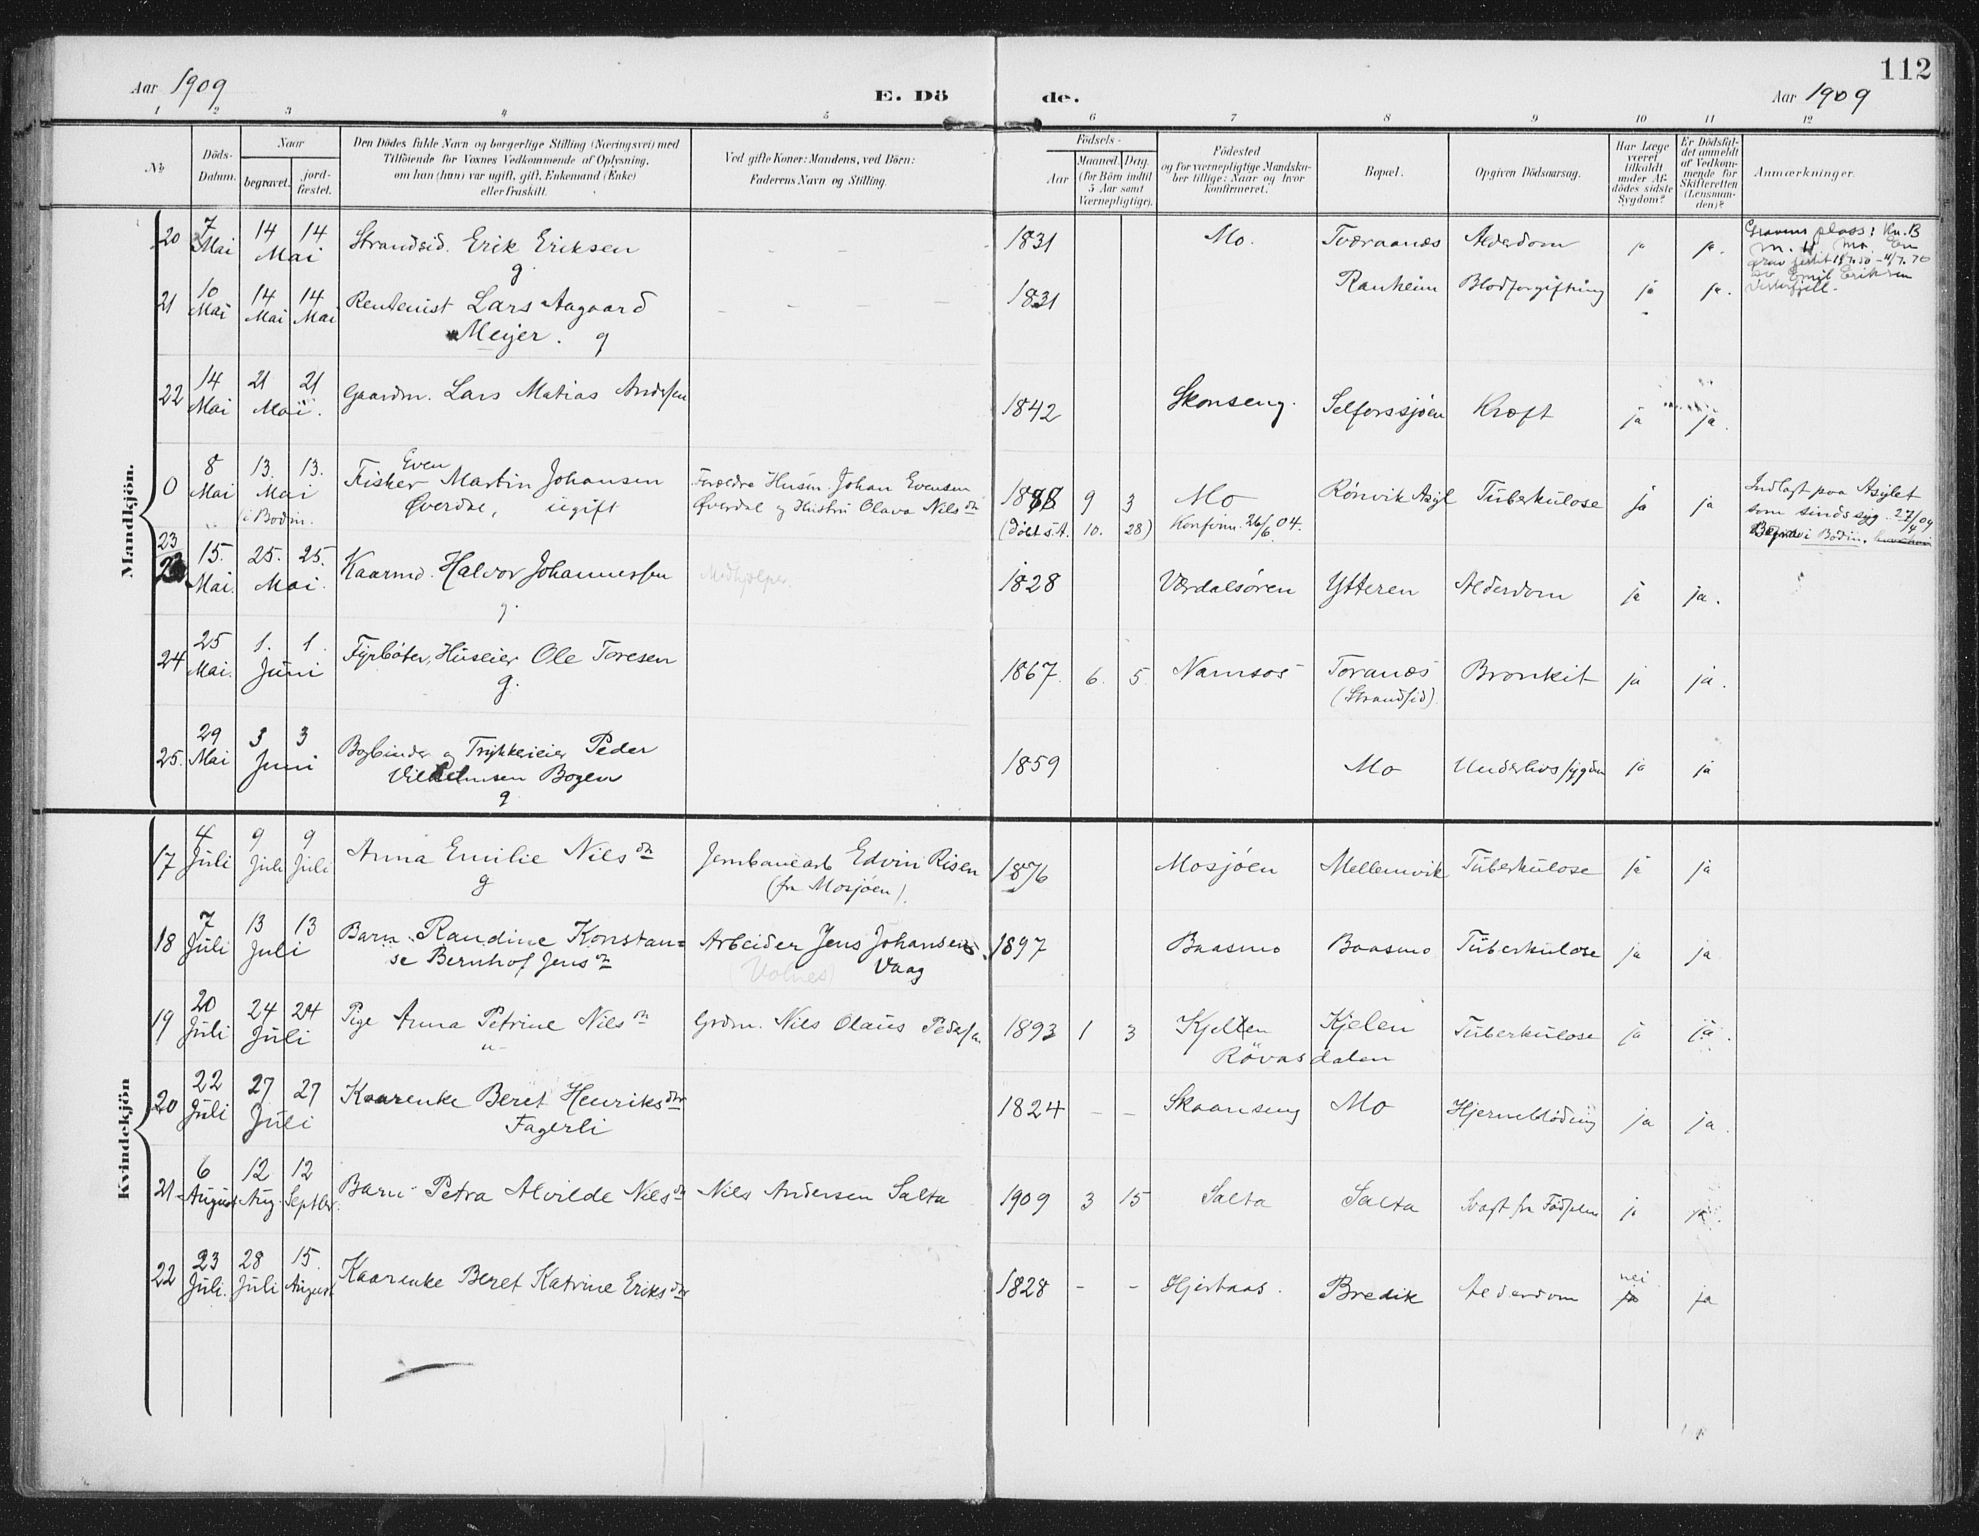 Aar 1909
E. Dö
de.
Aar 1909
112
1 2 3 4 5 6 7 8 9 10 11 12
№
Döds-
Datum.
Naar
begravet.
jord-
fæstet.
Den Dödes fulde Navn og borgerlige Stilling (Næringsvei) med
Tilföiende for Voxnes Vedkommende af Oplysning,
om han (hun) var ugift, gift, Enkemand (Enke)
eller fraskilt.
Ved gifte Koner: Mandens, ved Börn:
Faderens Navn og Stilling.
Födsels-
Aar
Maaned. Dag.
(for Börn indtil
5 Aar samt
Værnepligtige).
Födested
og for værnepligtige Mandska-
ber tillige: Naar og hvor
konfirmeret.
Bopæl.
Opgiven Dödsaarsag.
Har Læge
været
tilkaldt
under Af-
dödes sidste
Sygdom?
Er Dödsfal-
det anmeldt
af Vedkom-
mende for
Skifteretten
(Lensman-
den)?
Anmærkninger.
Mandkjön.
20 7 Mai 14 14 Mai Strandsid. Erik Eriksen g. – – – 1831 Mo. Tværaanæs Alderdom ja ja.
Gravens plass: Kv. B
21 10 Mai 14 Mai 14 Mai Rentenist Lars Aagaard
Meyer. g – – 1831 Ranheim Blodforgiftning ja ja.
22 14 Mai 21 21 Mai. Gaardm. Lars Matias Andersen 1842 Skonseng. Selforssjøen Kræft ja ja.
0 8 Mai 13. 13. Mai i Bodin. Fisker Even Martin Johansen
Øverdal, ugift
Forældre Husm. Johan Evensen
Øverdal og Hustru Olava Nilsdtr
1888 9 3
(døbt s. A. 10. 28)
Mo
Konfirm. 26/6 04.
Rønvik Asyl Tuberkulose ja ja
Indlagt paa Asylet
som sindssyg. 27/4 09
Begravet i Bodin.
23 15. Mai. 25. 25. Mai. Kaarmd. Halvor Johannessen g. Medhjælper. 1828 Værdalsøren Ytteren Alderdom ja ja.
24 25 Mai. 1. 1. Juni Fyrbøter, Huseier Ole Toresen g. 1867. 6. 5. Namsos Toranæs
(Strandsid). Bronkit ja ja.
25. 29 Mai 3 3 Juni Bogbinder og Trykkerieier Peder
Vilhelmsen Bogen
g 1859 Mo Underlivssygdom ja ja
Kvindekjön
17 4 Juli 9 Juli 9 Juli Anna Emilie Nilsdtr
g
Jernbanearb Edvin Risen
(fra Mosjøen). 1876 Mosjøen Mellemvik Tuberkulose ja ja
18 7 Juli 13 13 Juli Barn Randine Konstan=
se Bernhof Jensdtr
Arbeider Jens Johansen
(Volnes) Vaag 1897 Baasmo Baasmo Tuberkulose ja ja.
19 20 Juli 24 24 Juli Pige Anna Petrine Nilsdtr
"
Grdm. Nils Olaus Peders. 1893 1 3 Kjelen Kjelen
Røvasdalen Tuberkulose ja ja.
20 22 Juli 27 27 Juli Kaarenke Beret Henriksdtr
Fagerli 1824 – – Skaanseng Mo Hjerneblødning ja ja.
21 6 August 12 Aug. 12 Septbr. Barn Petra Alvilde Nilsdtr Nils Andersen Salta 1909 3 15 Salta Salta Svagt fra Fødselen ja ja.
22 23 Juli. 28 Juli 15. August Kaarenke Beret Katrine Eriksdtr 1828 – – Hjertaas. Bredik Alderdom nei ja